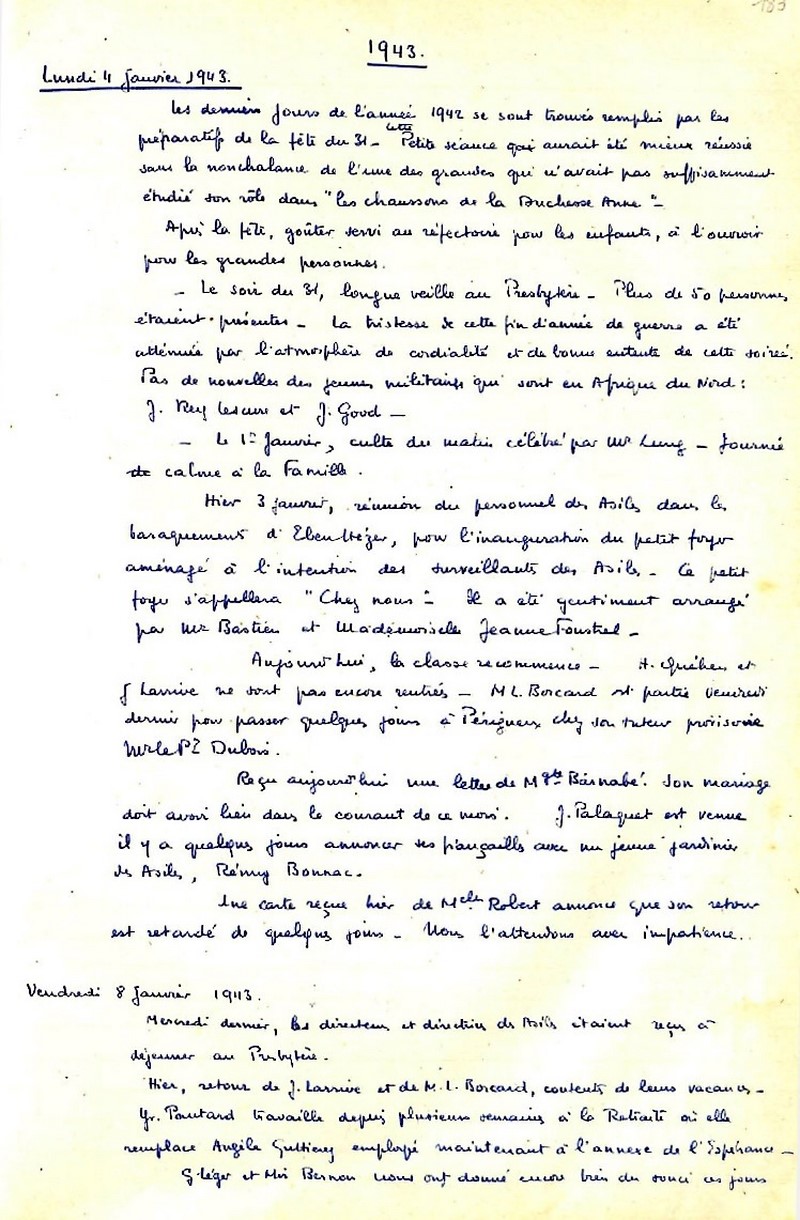 183
1943.
Lundi 4 Janvier 1943.
Les derniers jours de l'année 1942 se sont trouvés remplis par les
préparatifs de la fête du 31 - cette Petite séance qui aurait été mieux réussie
sans la nonchalance de l'une des grandes qui n'avait pas suffisamment
étudié son rôle dans "les chaussons de la Duchesse Anne" -
Après la fête, goûter servi au réfectoire pour les enfants, à l'ouvroir
pour les grandes personnes.
- Le soir du 31, longue veille au Presbytère - Plus de 50 personnes
étaient présentes - La tristesse de cette fin d'année de guerre a été
atténuée par l'atmosphère de cordialité et de bonne entente de cette soirée.
Pas de nouvelles des jeunes militaires qui sont en Afrique du Nord :
J. Rey Lescure et J. Good -
- Le 1er Janvier, culte du matin célébré par Mr Lung - Journée
de calme à la Famille.
Hier 3 janvier, réunion du personnel des Asiles dans le
baraquement d'Eben Hézer, pour l'inauguration du petit foyer
aménagé à l'intention des surveillants des Asiles - Ce petit
foyer s'appellera "Chez nous" - Il a été gentiment arrangé
par Mr Bastien et Mademoiselle Jeanne Foustel -
Aujourd'hui, la classe recommence - H. Quéhen et
J Larrive ne sont pas encore rentrés - M L. Borcard est partie vendredi
dernier pour passer quelques jours à Périgueux chez son tuteur provisoire
Mr le Pr Dubois.
Reçu aujourd'hui une lettre de Mgte Barnabé. Son mariage
doit avoir lieu dans le courant de ce mois. J. Palaquet est venue
il y a quelques jours annoncer ses fiançailles avec un jeune jardinier
des Asiles, Rémy Bonnac.
Une carte reçue hier de Melle Robert annonce que son retour
est retardé de quelques jours - Nous l'attendons avec impatience.
Vendredi 8 Janvier 1943.
Mercredi dernier, les directeurs et directrices des Asiles étaient reçus à
déjeuner au Presbytère.
Hier, retour de J. Larrive et de M. L. Borcard, contents de leurs vacances -
Yv. Pautard travaille depuis plusieurs semaines à la Retraite où elle
remplace Angèle employé maintenant à l'annexe de l'Espérance -
G. Léger et Mir Bernon nous ont donné encore bien du souci ces jours